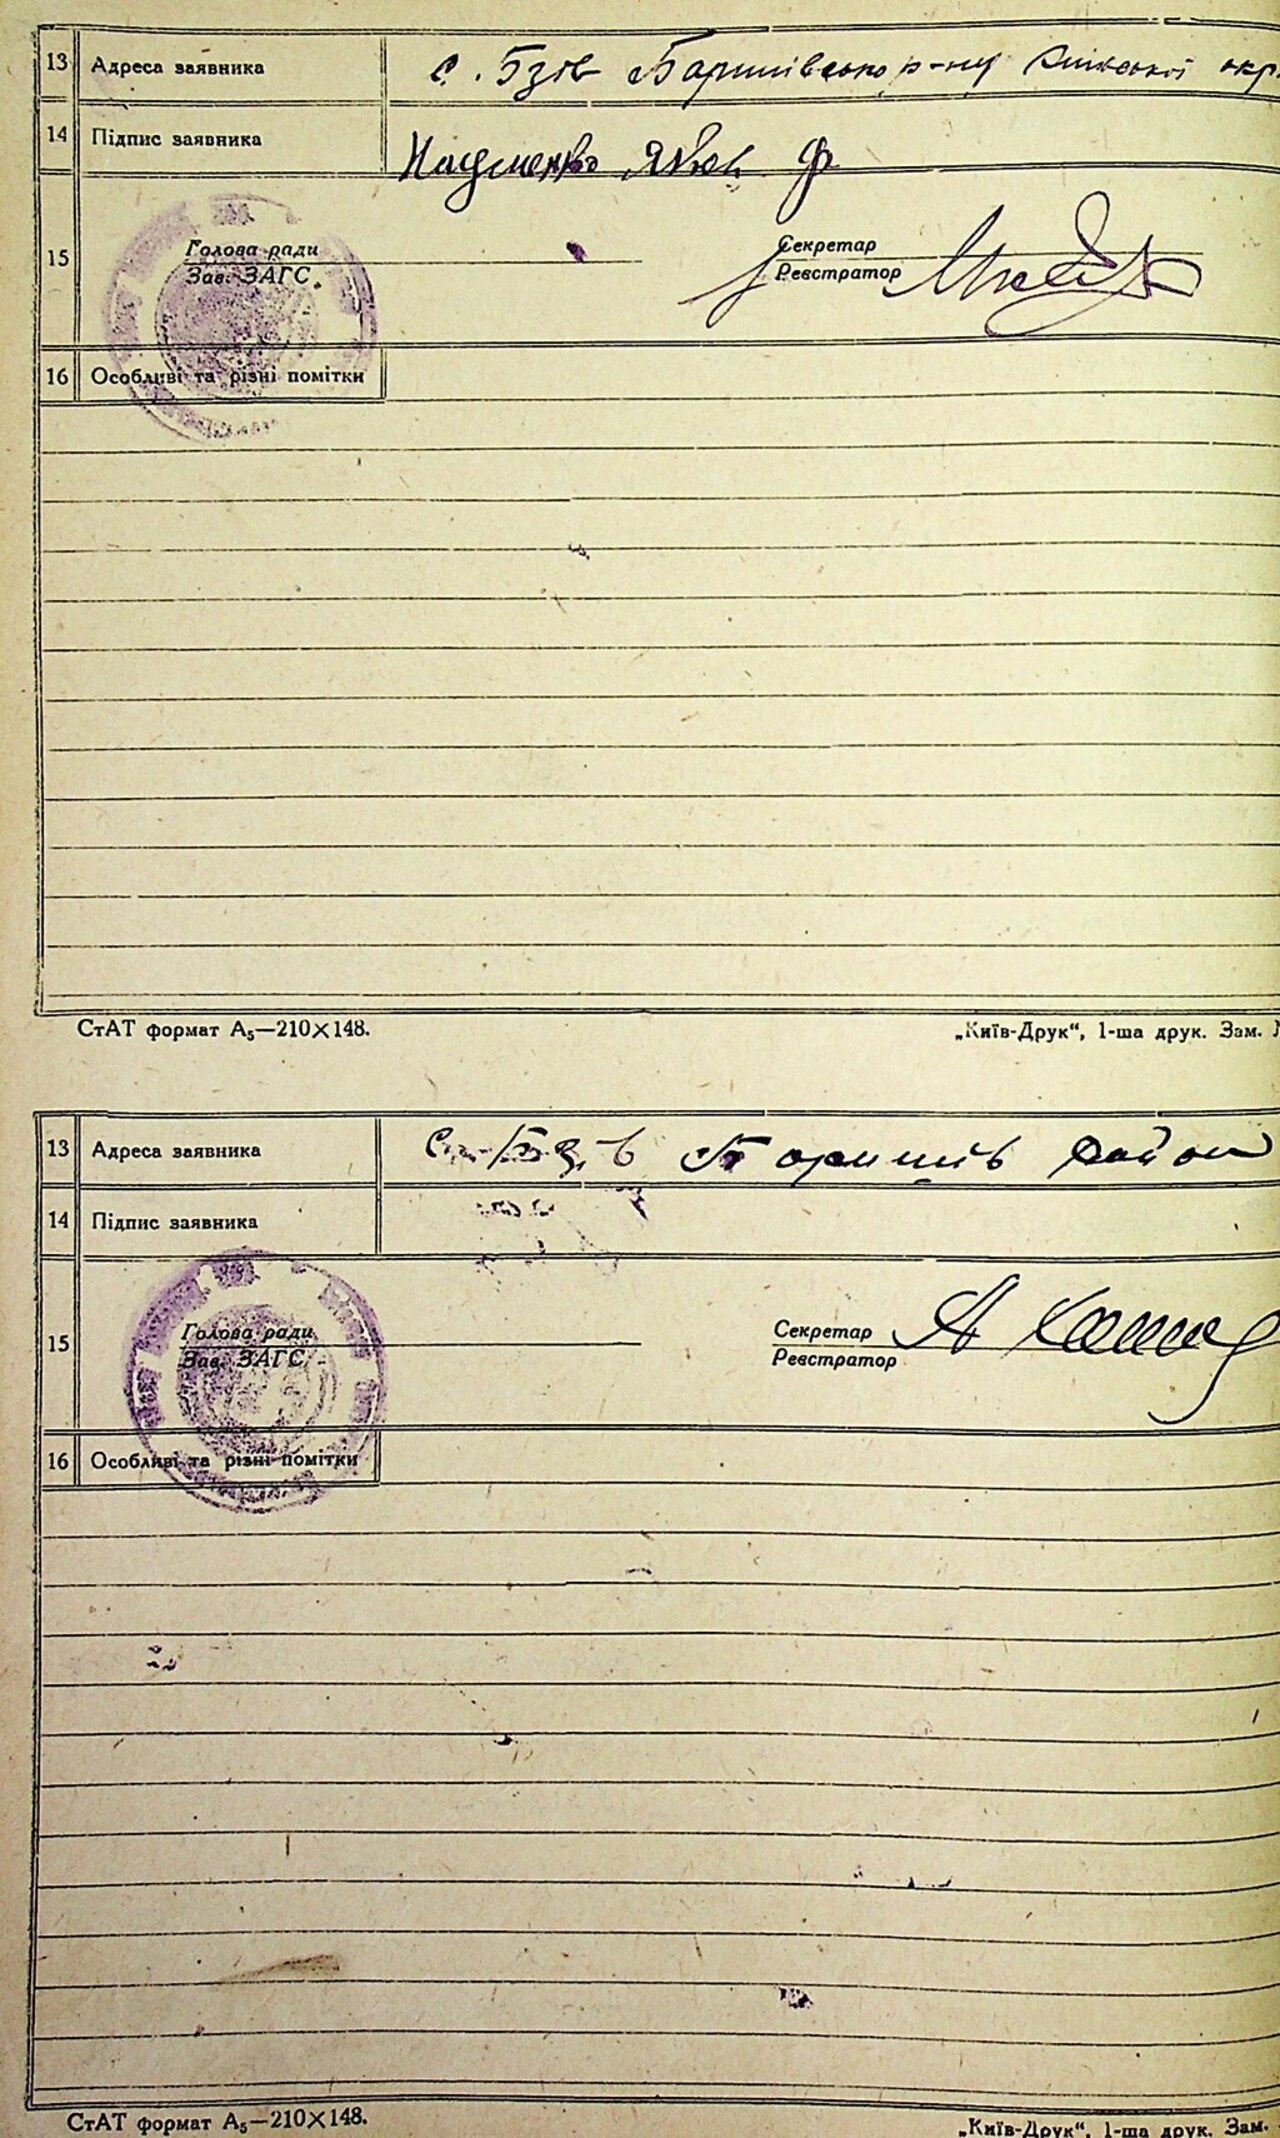 13 Адреса заявника с. Бзів Баришівсько р-ну Київської окр.
14 Підпис заявника Науменко Яков Ф
15 Голова ради Секретар
Зав. ЗАГС. Реєстратор
16 Особливі та різні помітки
СтАТ формат А₅—210×148. „Київ-Друк“, 1-ша друк. Зам.
13 Адреса заявника с. Бзів Баришів район
14 Підпис заявника
15 Голова ради Секретар
Зав. ЗАГС. Реєстратор
16 Особливі та різні помітки
СтАТ формат А₅—210×148. „Київ-Друк“, 1-ша друк. Зам.